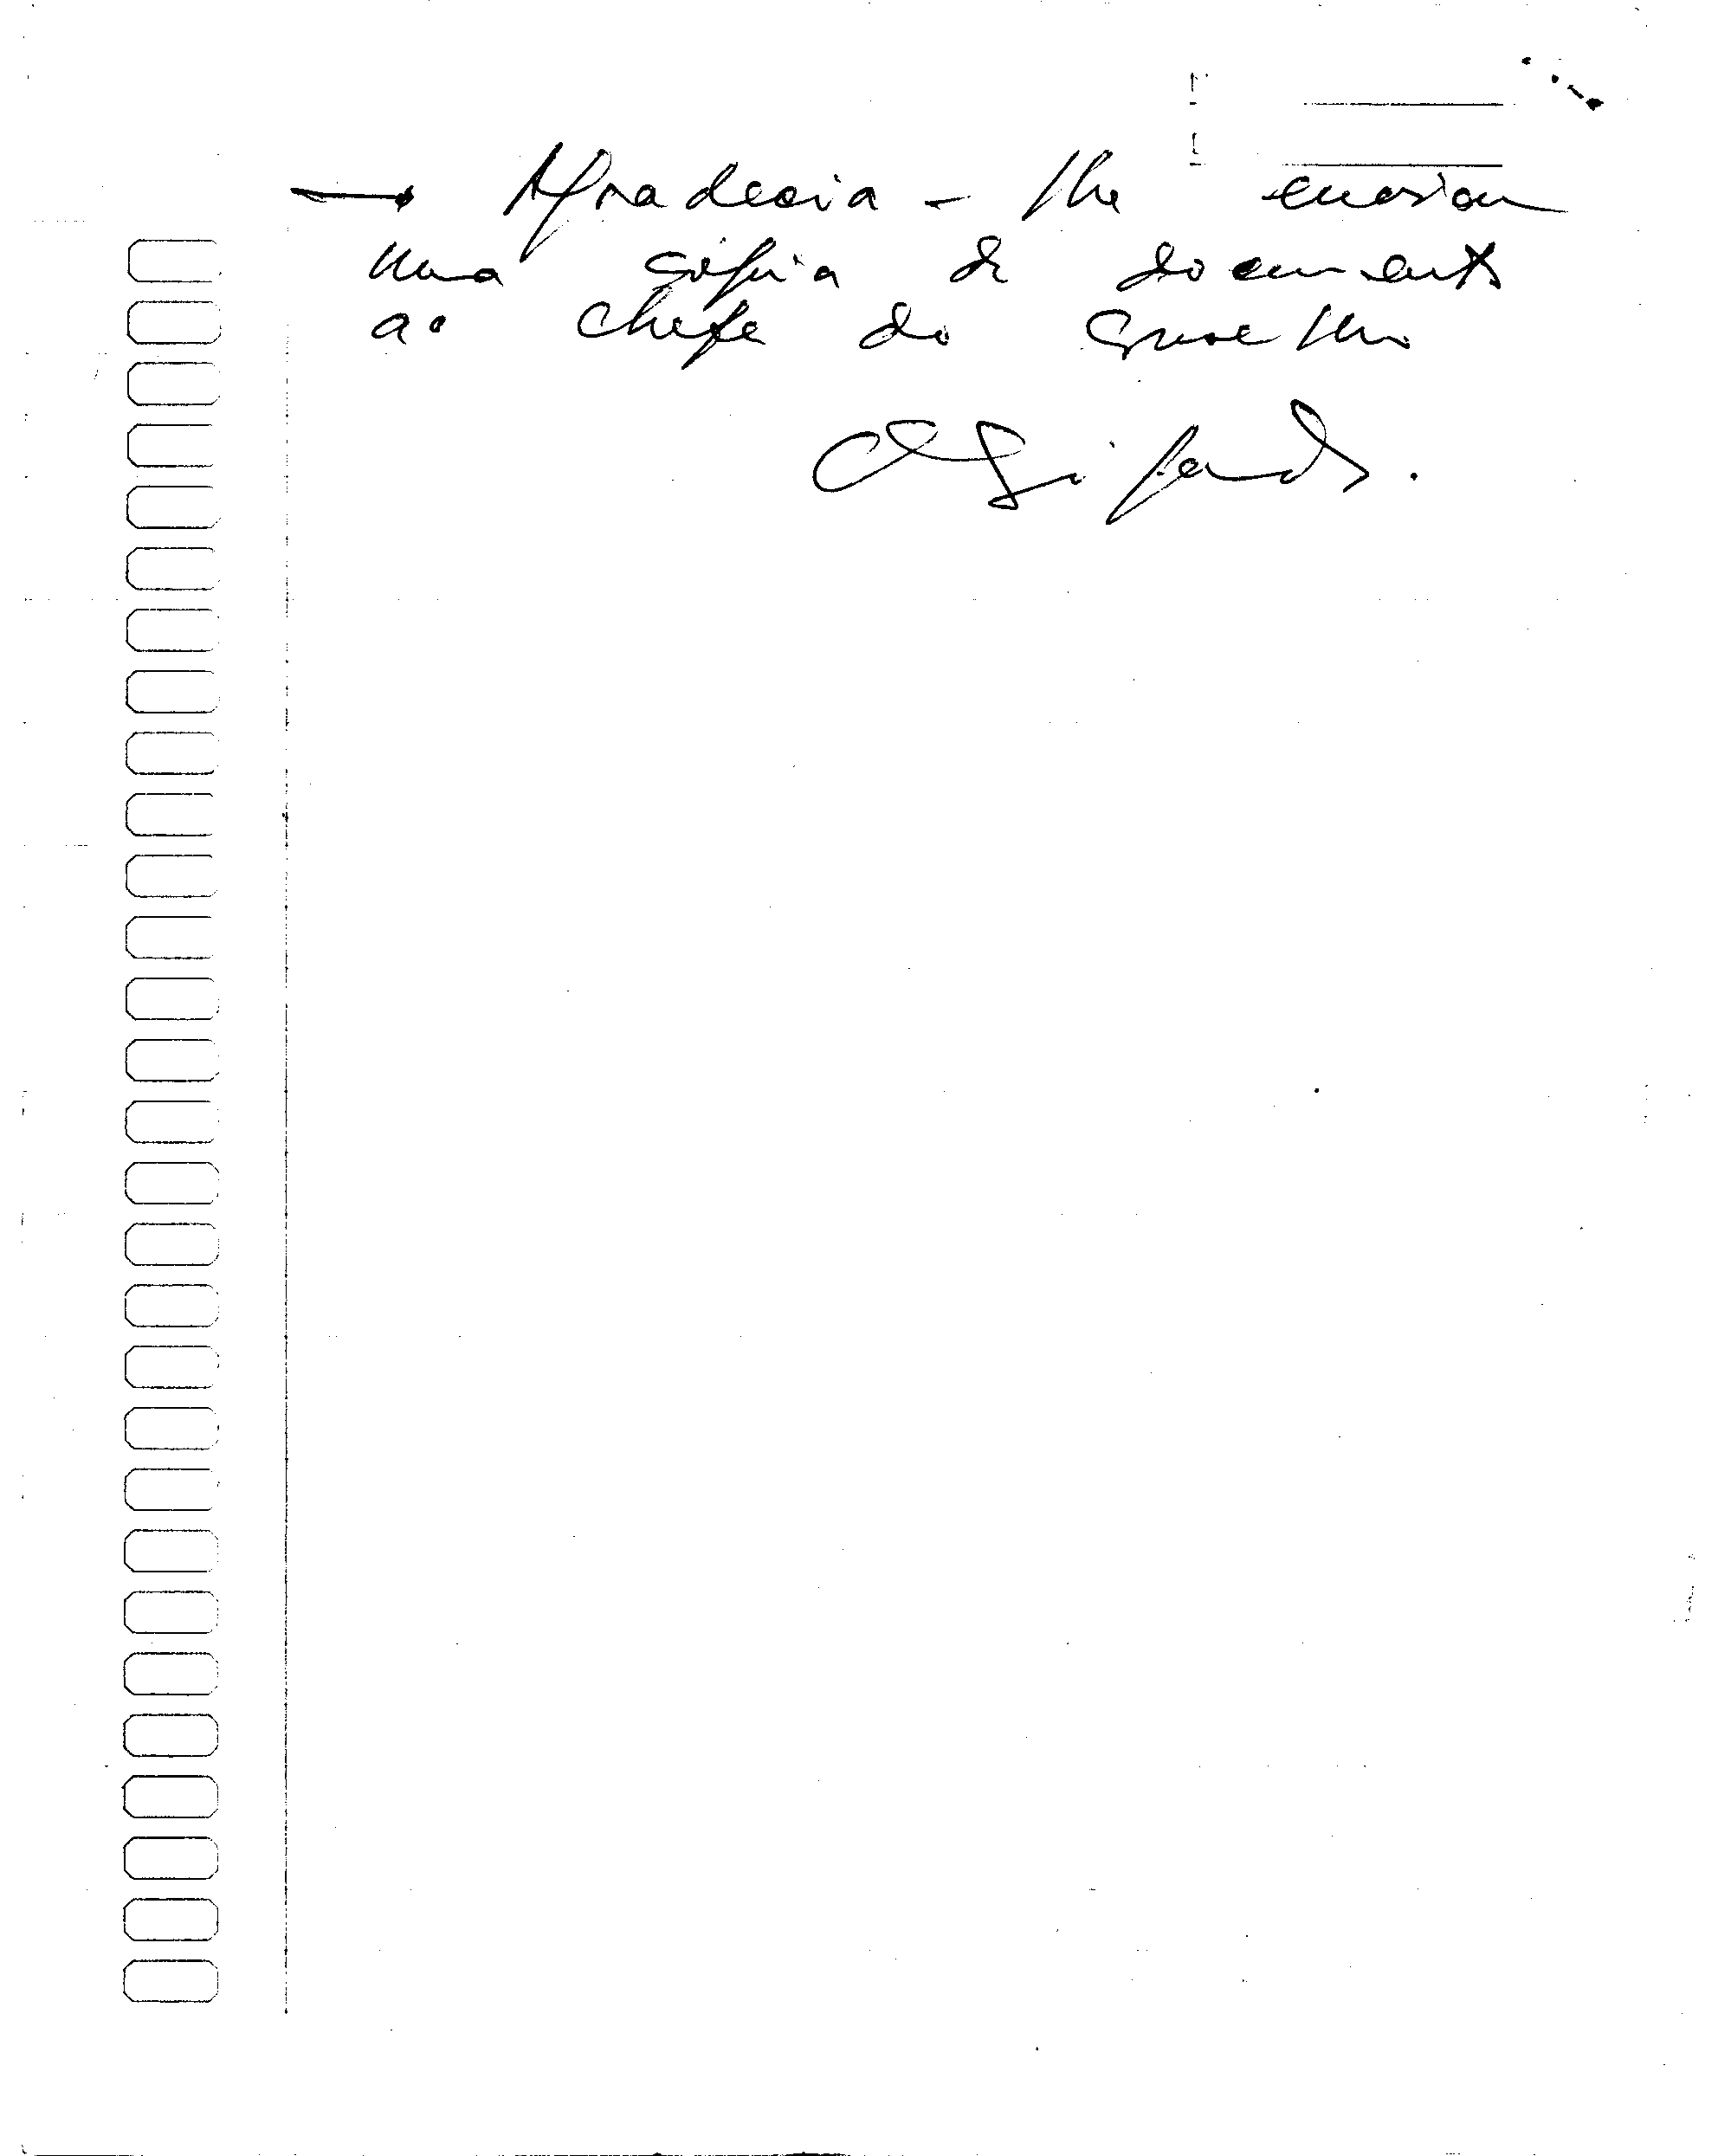 → Agradecia-lhe enviar
uma cópia do documento
ao Chefe do Conselho